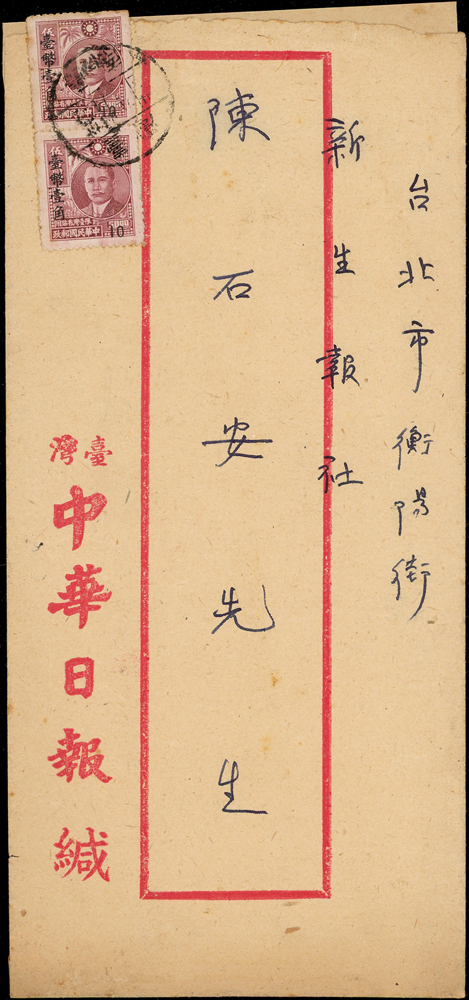 台北市衡陽街
新生報社
陳石安先生
臺灣
中華日報緘
臺幣壹角
10
臺幣壹角
中華民國郵政
5000
10